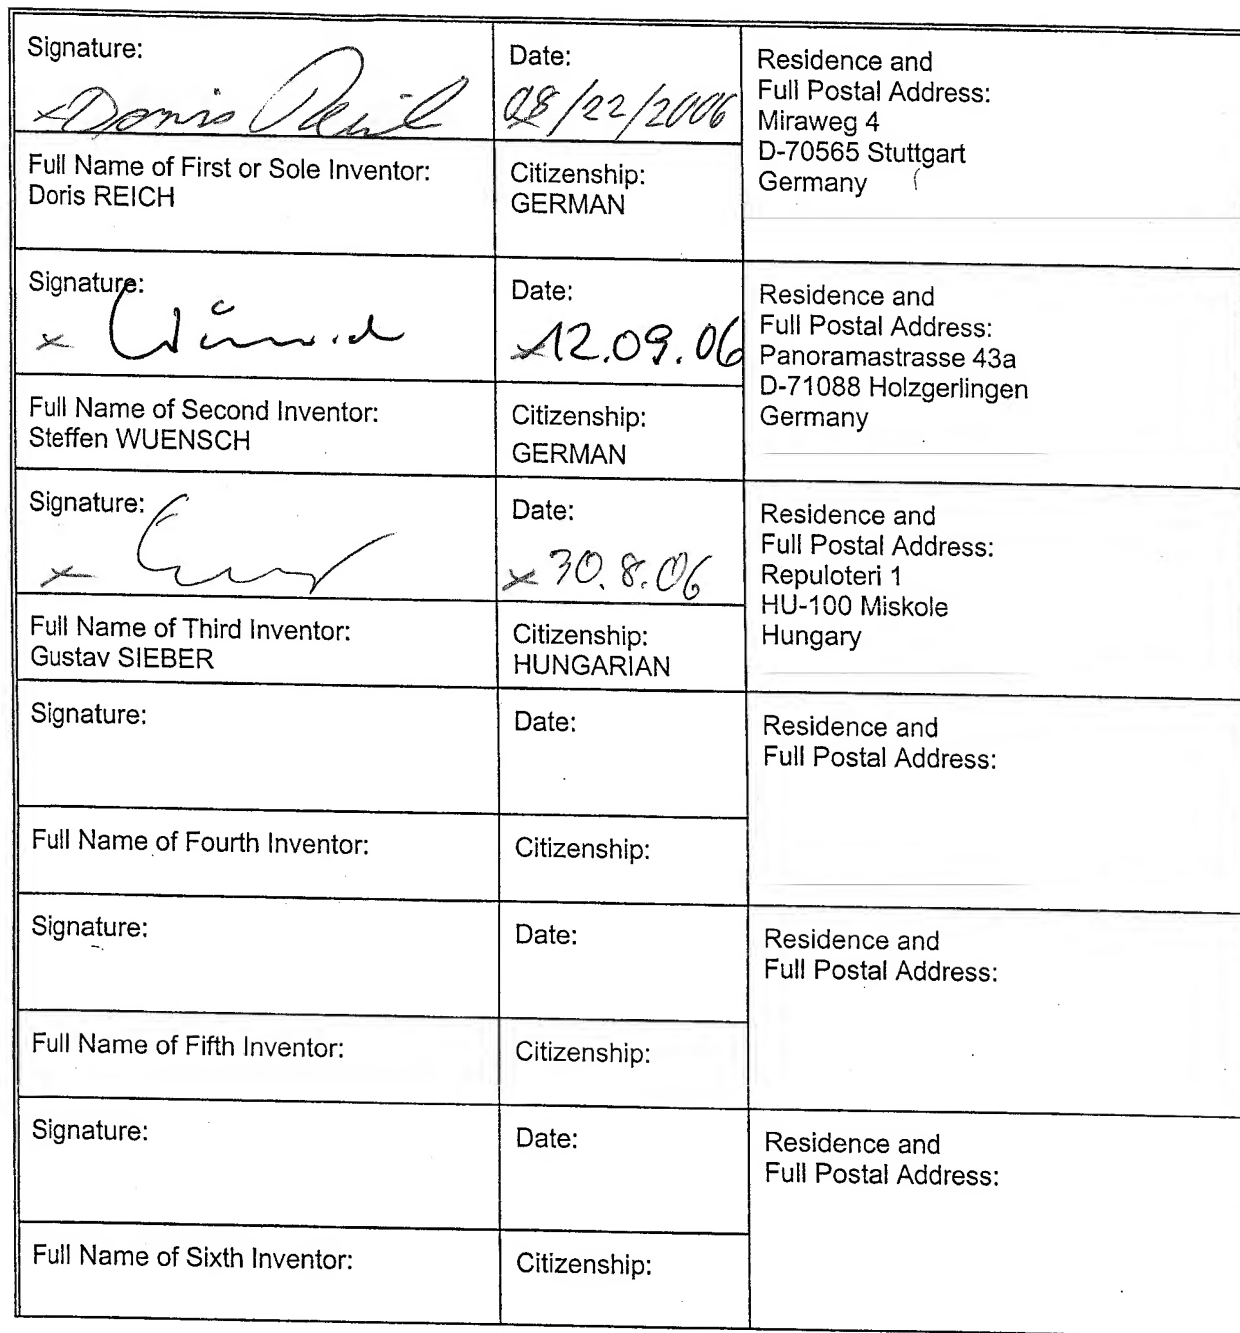 Signature:
Doris Reich
Date:
08/22/2006
Residence and
Full Postal Address:
Miraweg 4
D-70565 Stuttgart
Germany
Full Name of First or Sole Inventor:
Doris REICH
Citizenship:
GERMAN
Signature:
x
Date:
x 12.09.06
Residence and
Full Postal Address:
Panoramastrasse 43a
D-71088 Holzgerlingen
Germany
Full Name of Second Inventor:
Steffen WUENSCH
Citizenship:
GERMAN
Signature:
x
Date:
x 30.8.06
Residence and
Full Postal Address:
Repuloteri 1
HU-100 Miskole
Hungary
Full Name of Third Inventor:
Gustav SIEBER
Citizenship:
HUNGARIAN
Signature:
Date:
Residence and
Full Postal Address:
Full Name of Fourth Inventor:
Citizenship:
Signature:
Date:
Residence and
Full Postal Address:
Full Name of Fifth Inventor:
Citizenship:
Signature:
Date:
Residence and
Full Postal Address:
Full Name of Sixth Inventor:
Citizenship: